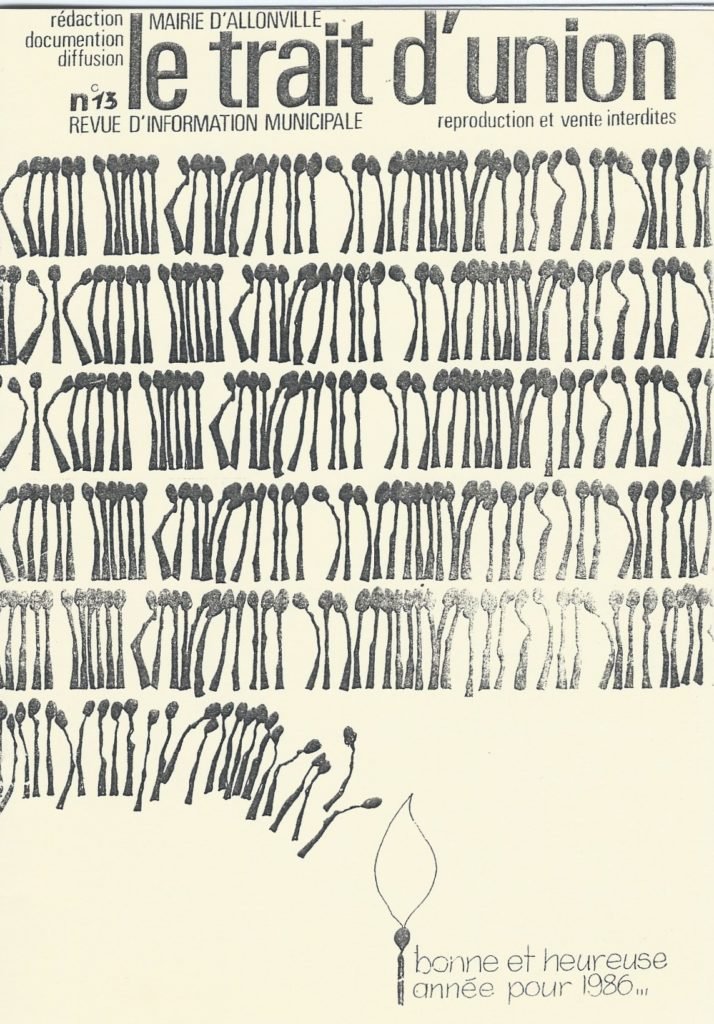 rédaction
documention
diffusion
MAIRIE D'ALLONVILLE
le trait d'union
n°13
REVUE D'INFORMATION MUNICIPALE
reproduction et vente interdites
bonne et heureuse
année pour 1986...